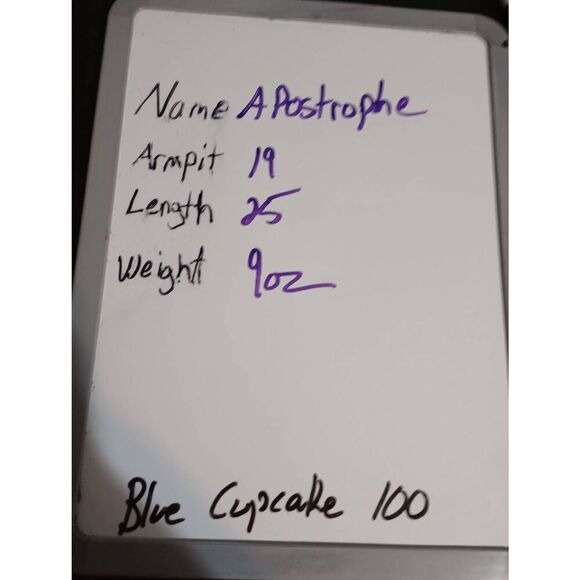 Name APostrophe
Armpit 19
Length 25
Weight 9oz
Blue Cupcake 100